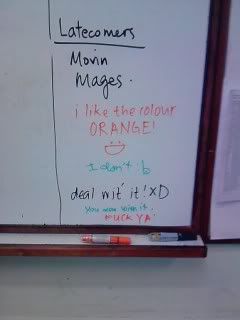 Latecomers
Movin
Mages.
i like the colour
ORANGE!
I don't :b
deal wit' it! XD
you mess with it.
FUCK YA.